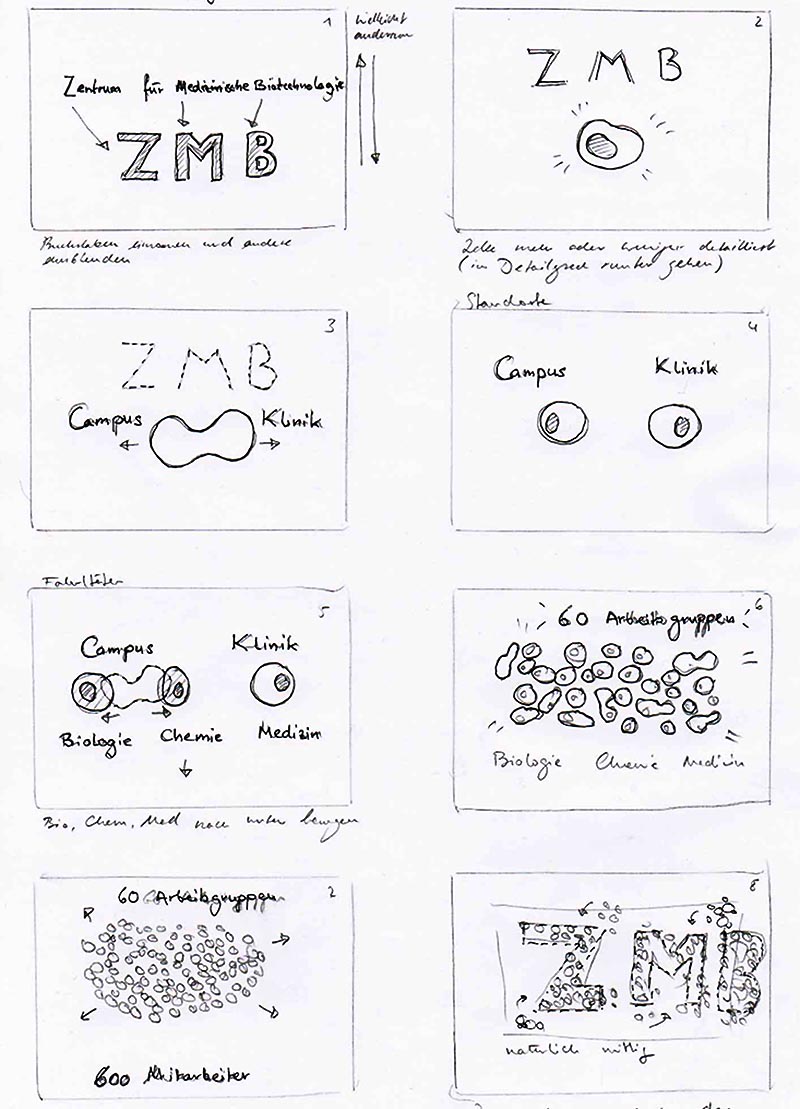 1
vielleicht
andersrum
Zentrum für Medizinische Biotechnologie
ZMB
Buchstaben einsammen und andere
ausblenden
2
ZMB
Zelle mehr oder weniger detailliert
(im Detailgrad runter gehen)
3
ZMB
Campus Klinik
Standorte
4
Campus Klinik
Fakultäten
5
Campus Klinik
Biologie Chemie Medizin
Bio, Chem, Med nach unten bewegen
6
60 Arbeitsgruppen
Biologie Chemie Medizin
7
60 Arbeitsgruppen
600 Mitarbeiter
8
ZMB
natürlich mittig